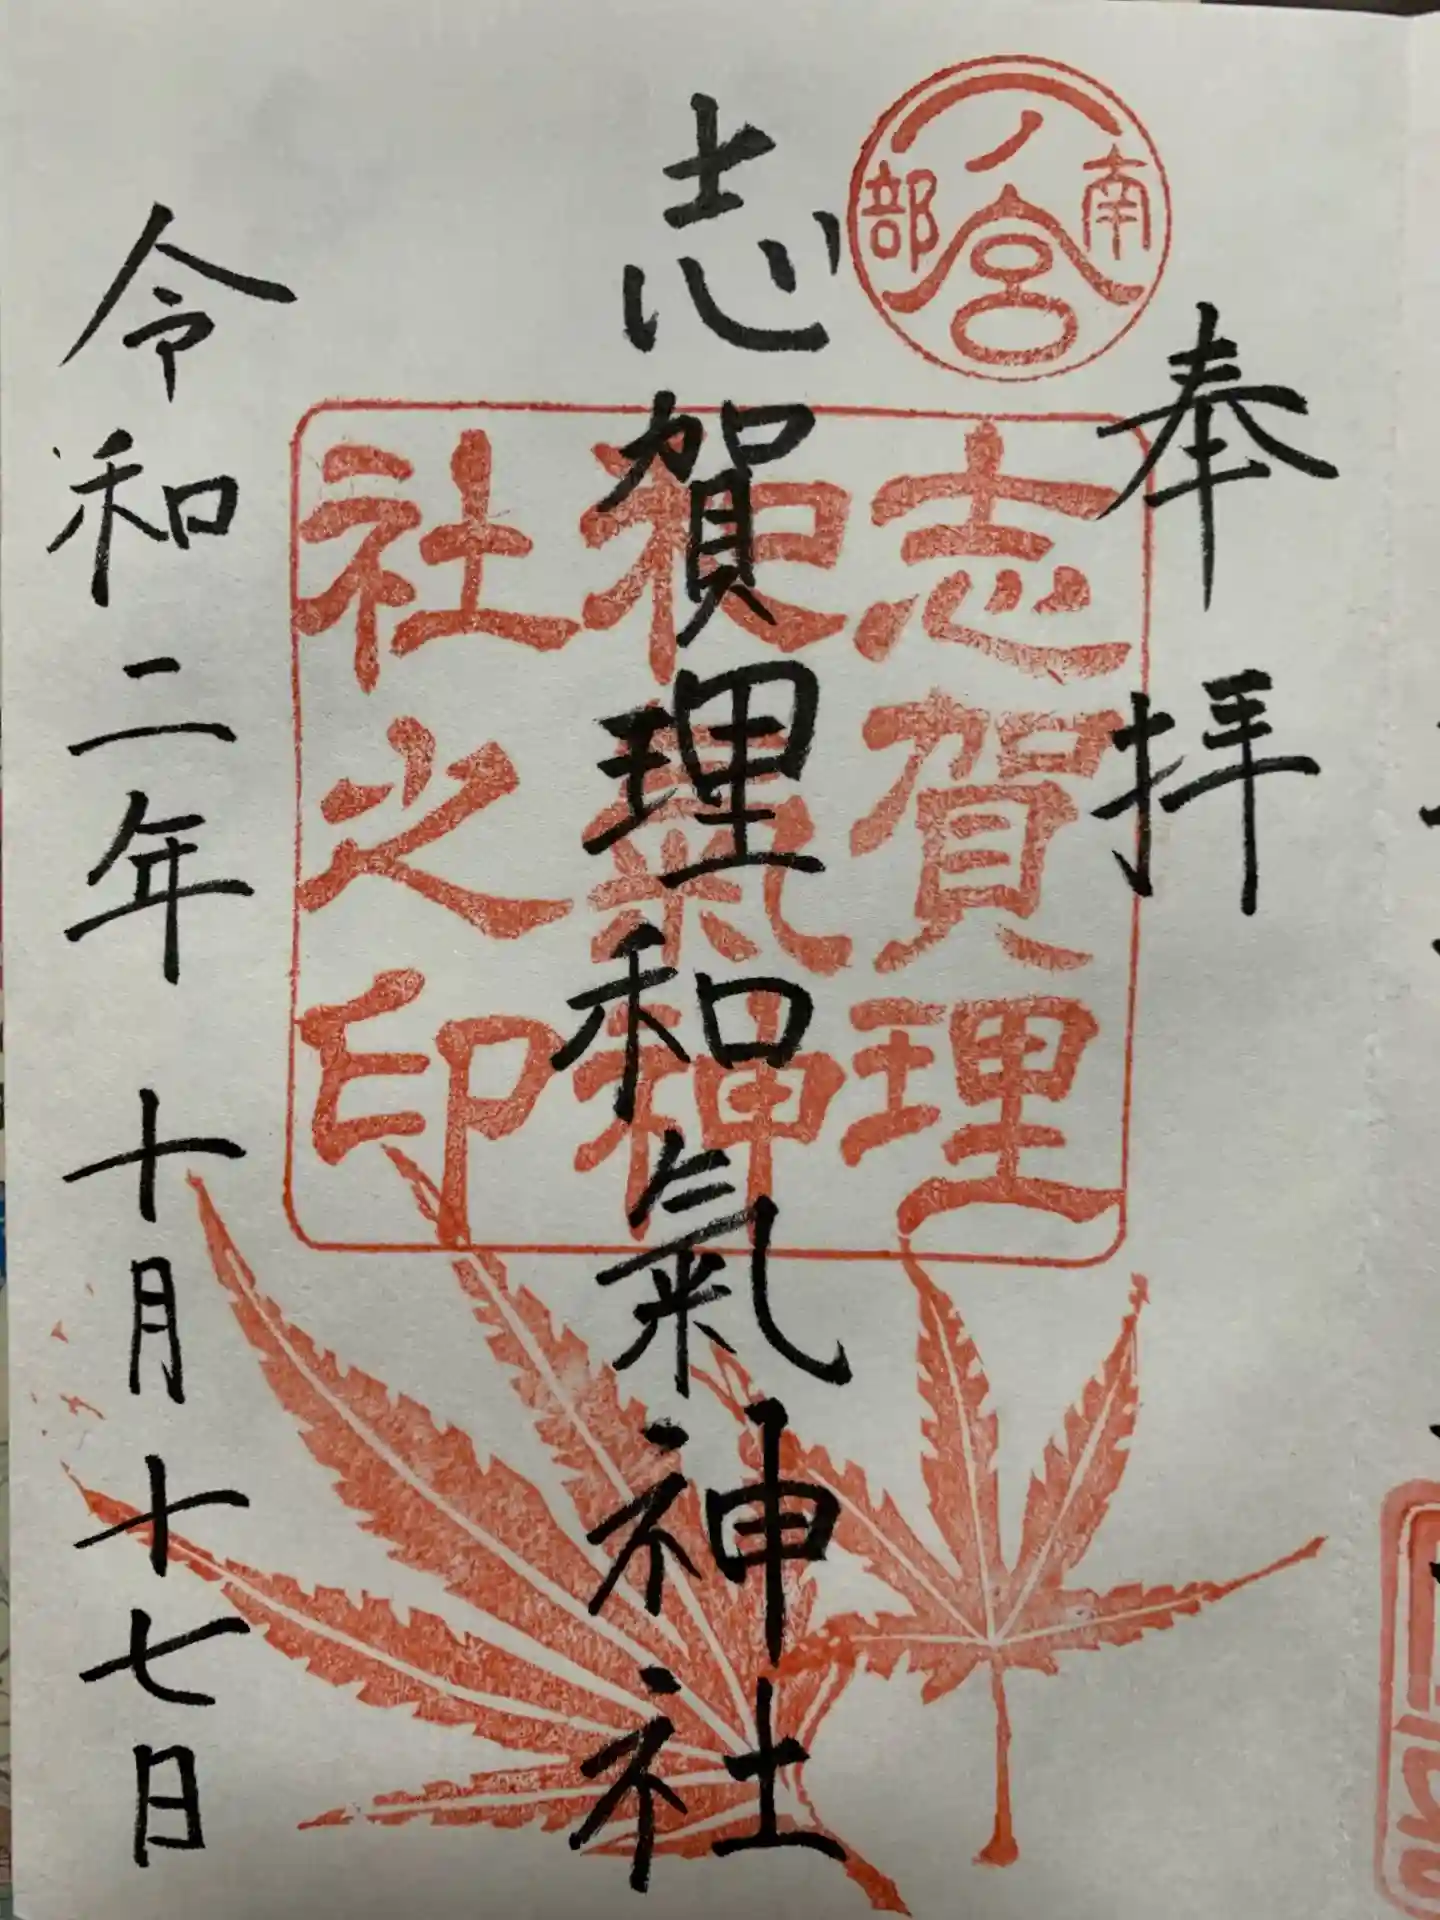 奉拝
南部
一ノ宮
志賀理和氣神社
志賀理
和氣神
社之印
令和二年 十月十七日